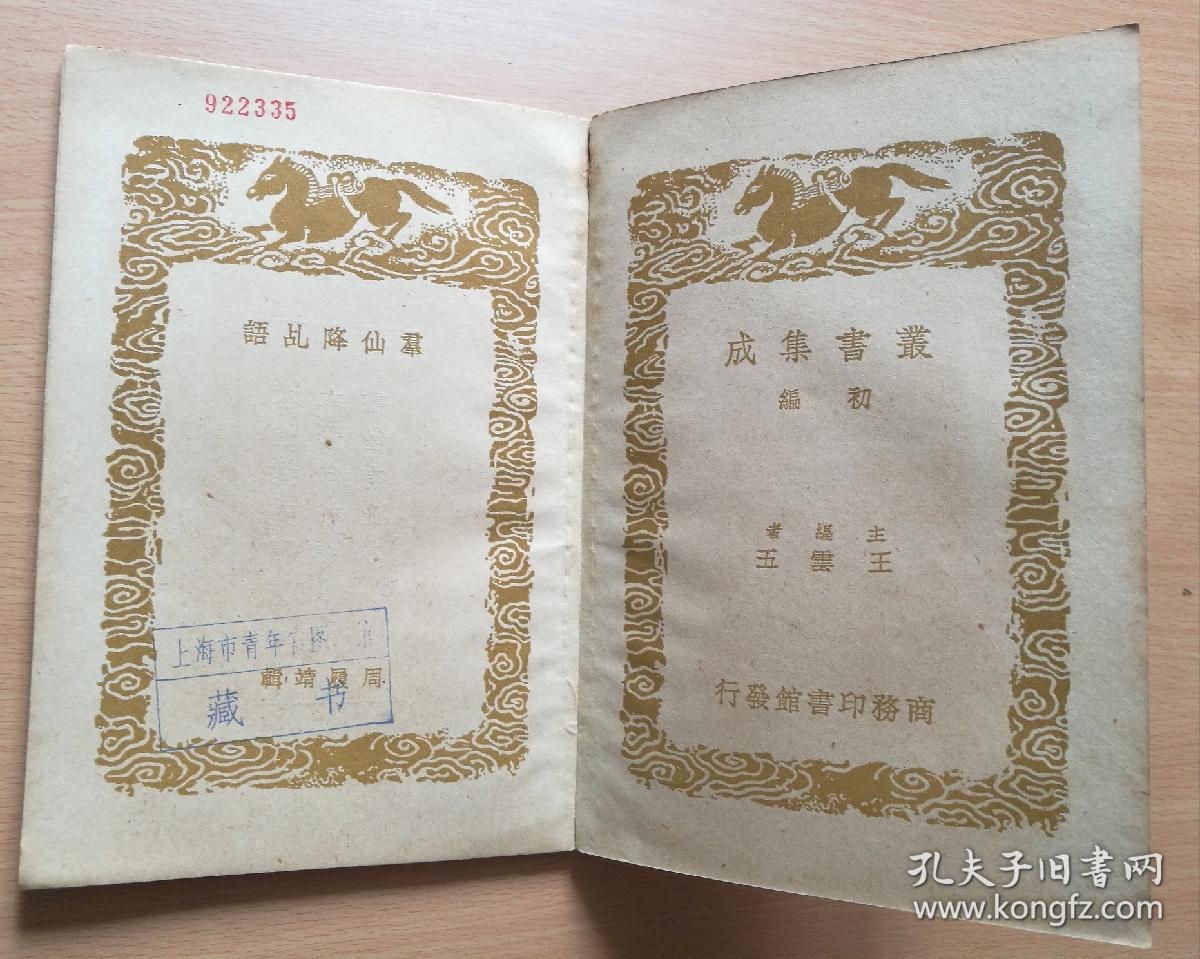 叢書集成
初編
主編者
王雲五
商務印書館發行
922335
羣仙降乩語
周履靖輯
上海市青年宫
藏书
孔夫子旧书网
www.kongfz.com
4